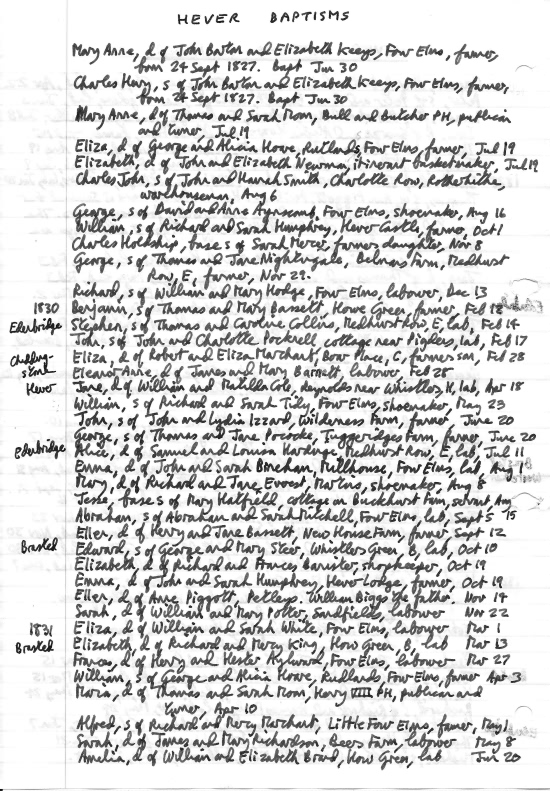 HEVER BAPTISMS
Mary Anne, d of John Barton and Elizabeth Keeys, Four Elms, farmer,
born 24 Sept 1827. Bapt Jun 30
Charles Henry, s of John Barton and Elizabeth Keeys, Four Elms, farmer,
born 24 Sept 1827. Bapt Jun 30
Mary Anne, d of Thomas and Sarah Moon, Bull and Butcher PH, publican
and turner, Jul 19
Eliza, d of George and Alicia Howe, Rutlands, Four Elms, farmer, Jul 19
Elizabeth, d of John and Elizabeth Newman, itinerant basketmaker, Jul 19
Charles John, s of John and Hannah Smith, Charlotte Row, Rotherhithe,
warehouseman, Aug 6
George, s of David and Anne Aynscomb, Four Elms, shoemaker, Aug 16
William, s of Richard and Sarah Humphrey, Hever Castle, farmer, Oct 1
Charles Holdship, base s of Sarah Mercer, farmers daughter, Nov 8
George, s of Thomas and Jane Nightingale, Delmas Farm, Medhurst
Row, E, farmer, Nov 29.
Richard, s of William and Mary Hodge, Four Elms, labourer, Dec 13
1830 Benjamin, s of Thomas and Mary Bassett, Howe Green, farmer, Feb 12
Edenbridge Stephen, s of Thomas and Caroline Collins, Medhurst Row, E, lab, Feb 14
John, s of John and Charlotte Pocknell, cottage near Pigless, lab, Feb 17
Chidding-stone Eliza, d of Robert and Eliza Marchant, Bow Place, C, farmers son, Feb 28
Eleanor Anne, d of James and Mary Barnett, labourer, Feb 28
Hever Jane, d of William and Matilda Cole, Reynolds near Whistlers, H, lab, Apr 18
William, s of Richard and Sarah Tidy, Four Elms, shoemaker, May 23
John, s of John and Lydia Izzard, Wilderness Farm, farmer, June 20
George, s of Thomas and Jane Pocock, Tuggeridges Farm, farmer, June 20
Edenbridge Alice, d of Samuel and Louisa Hardinge, Medhurst Row, E, lab, Jul 11
Emma, d of John and Sarah Boreham, Millhouse, Four Elms, lab, Aug 1
Mary, d of Richard and Jane Everest, Martins, shoemaker, Aug 8
Jesse, base s of Mary Hatfield, cottage on Buckhurst Farm, servant, Aug 15
Abraham, s of Abraham and Sarah Mitchell, Four Elms, lab, Sept 5
Ellen, d of Henry and Jane Bassett, New House Farm, farmer Sept 12
Brasted Edward, s of George and Mary Steer, Whistlers Green, B, lab, Oct 10
Elizabeth, d of Richard and Frances Banister, shopkeeper, Oct 19
Emma, d of John and Sarah Humphrey, Hever Lodge, farmer, Oct 19
Ellen, d of Anne Piggott, Petleys. William Biggs the father. Nov 14
Sarah, d of William and Mary Potter, Sandfields, labourer Nov 22
1831 Eliza, d of William and Sarah White, Four Elms, labourer Mar 1
Brasted Elizabeth, d of Richard and Mercy King, How Green, B, lab Mar 13
Frances, d of Henry and Hester Aylward, Four Elms, labourer Mar 27
William, s of George and Alicia Howe, Rudlands, Four Elms, farmer Apr 3
Maria, d of Thomas and Sarah Moon, Henry VIII PH, publican and
turner, Apr 10
Alfred, s of Richard and Mercy Marchant, Little Four Elms, farmer, May 1
Sarah, d of James and Mary Richardson, Beers Farm, labourer May 8
Amelia, d of William and Elizabeth Board, How Green, lab Jun 20